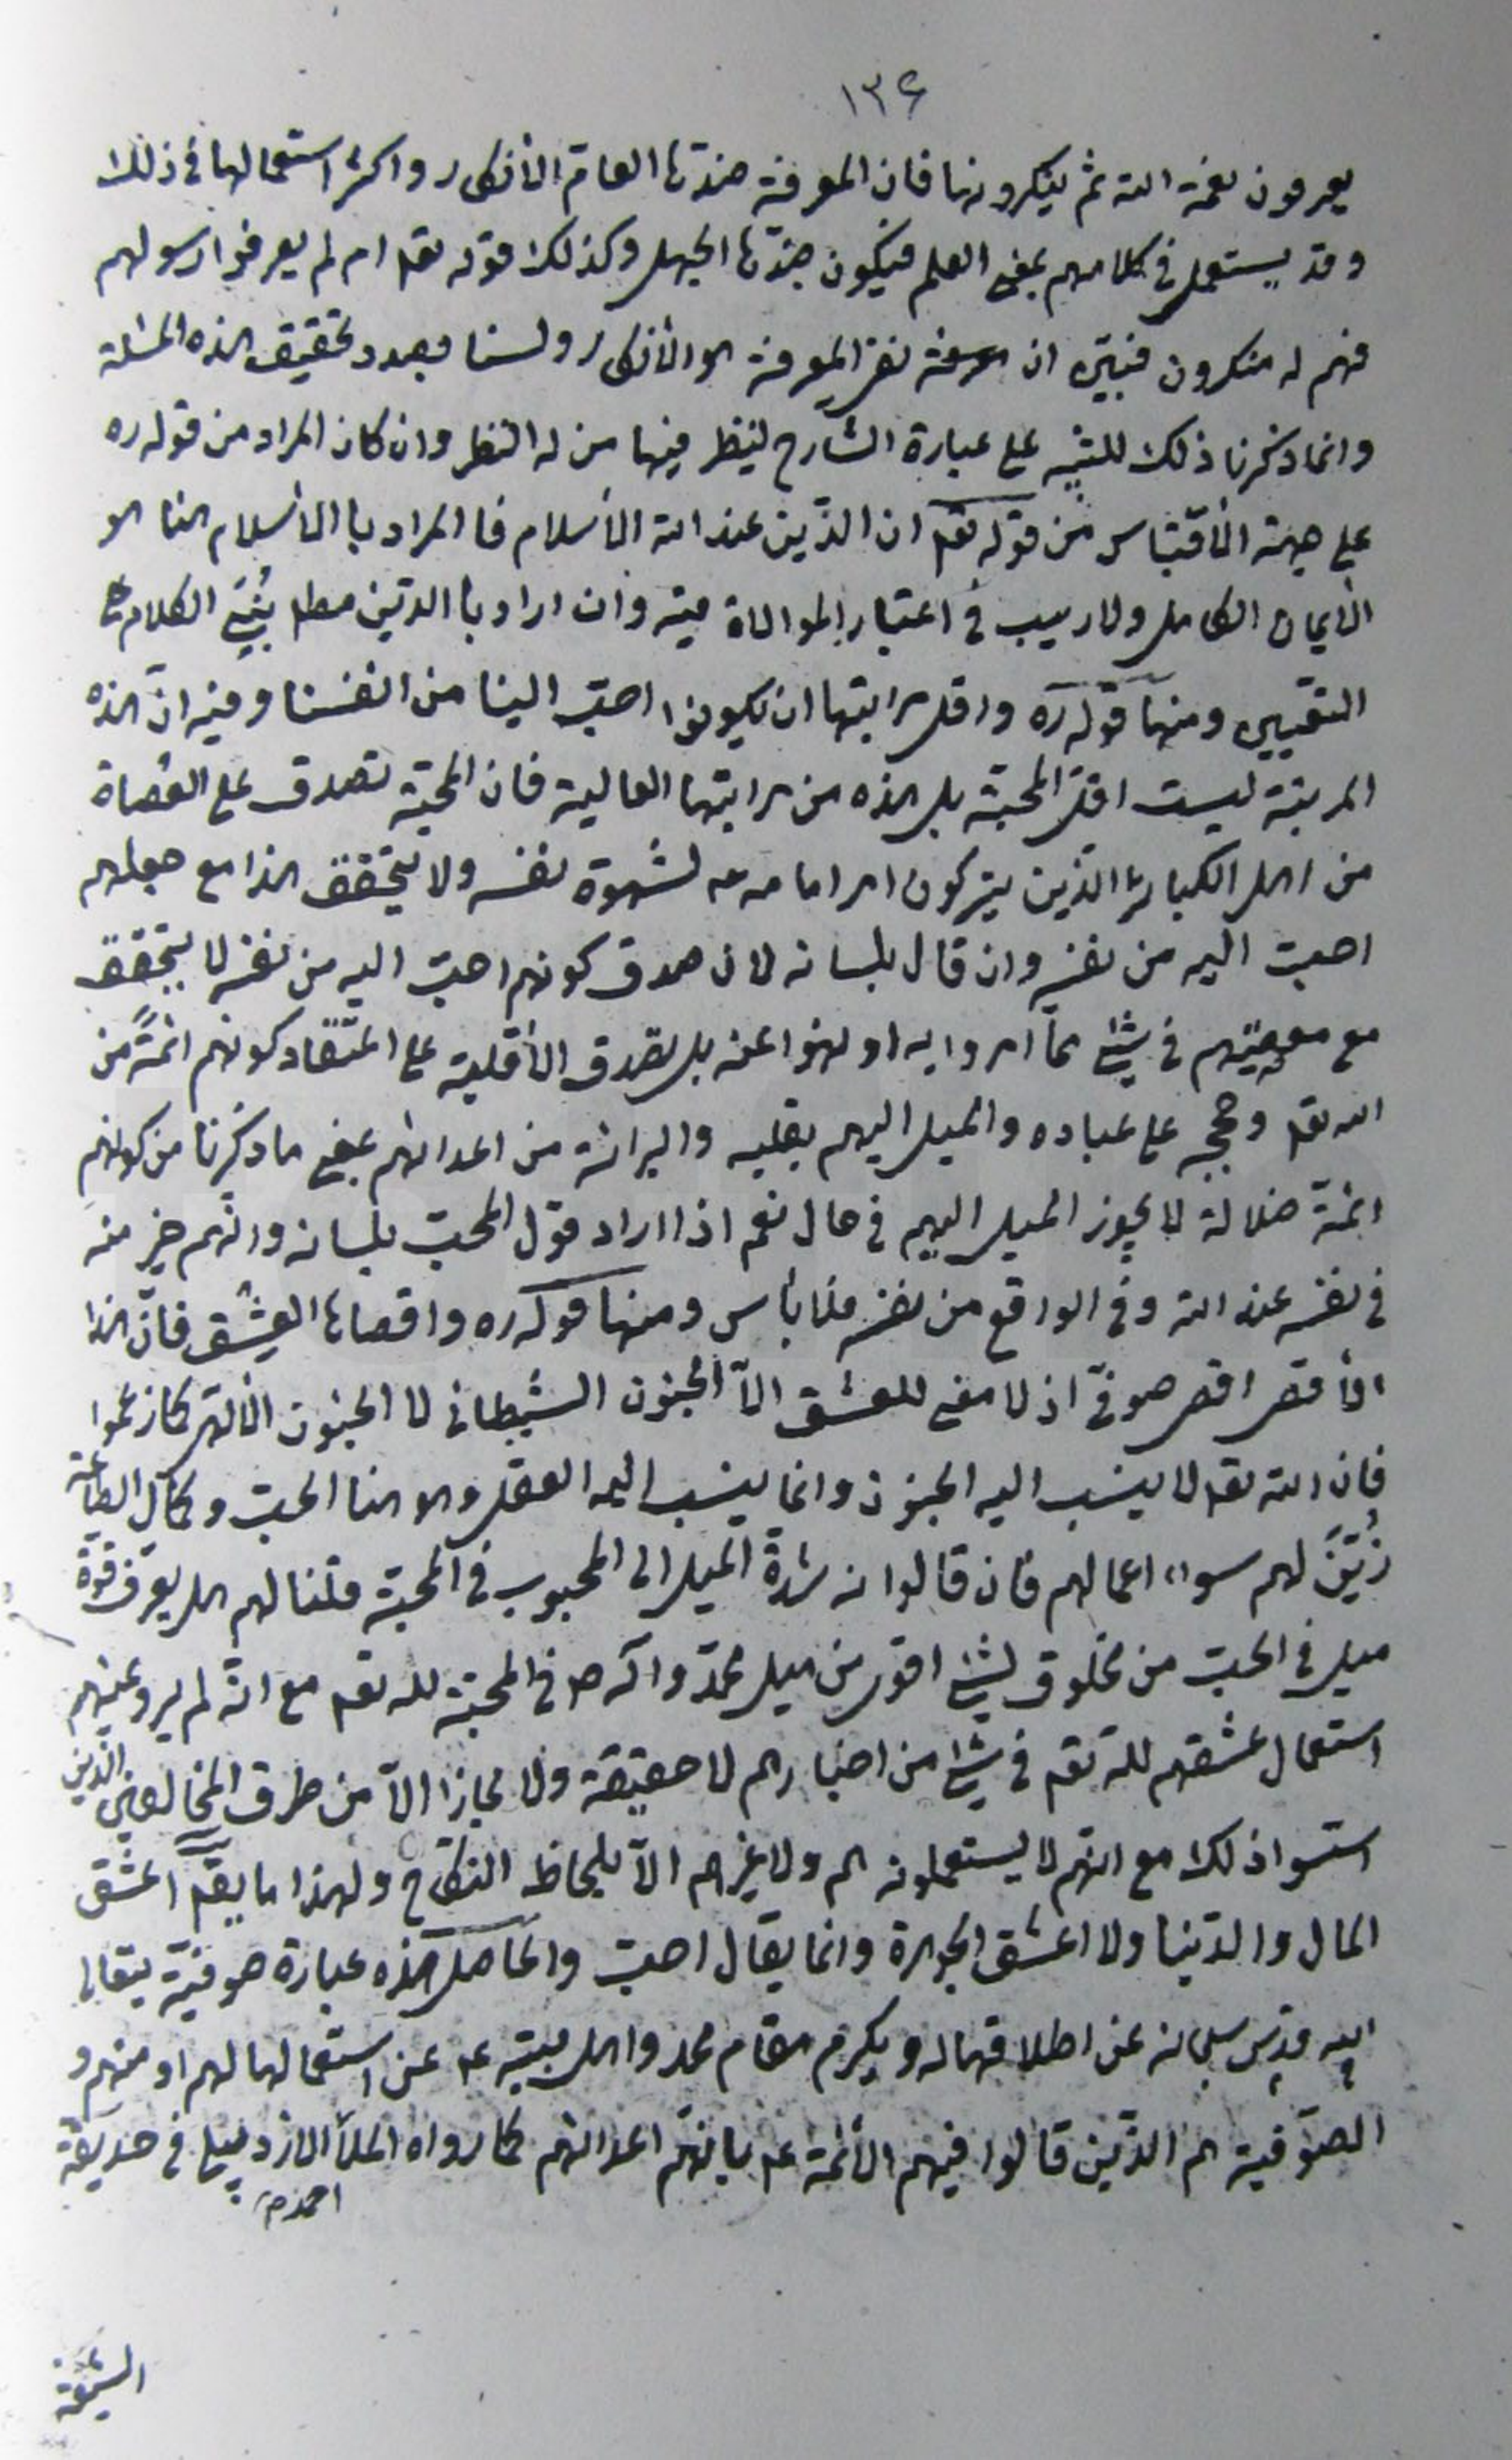 ١٣٤
يعرفون نعمة الله ثم ينكرونها فان المعرفة ضدها العام الأنكار واكثر استعمالها في ذلك
وقد يستعمل في كلامهم بمعنى العلم فيكون ضدها الجهل وكذلك قوله تعـ ام لم يعرفوا رسولهم
فهم له منكرون فتبيّن ان نفى المعرفة هو الأنكار ولسنا بصدد تحقيق هذه المسئلة
وانما ذكرنا ذلك للتنبيه على عبارة الشارح لينظر فيها من له النظر وان كان المراد من قوله ره
على جهة الأقتباس من قوله تعـ ان الدّين عند الله الأسلام فالمراد با الأسلام هنا هو
الأيمان الكامل ولا ريب في اعتبار الموالاة فيه وان اراد با الدّين مطـ بُنِيَ الكلام على
التقيين ومنها قوله ره واقل مرابتها ان يكونوا احبّ الينا من انفسنا وفيه انّ هذه
المرتبة ليست اقل المحبّة بل هذه من مراتبها العالية فان المحبّة تصدق على العُصاة
من اهل الكبائر الذّين يتركون امر امامه عـ لشهوة نفسه ولا يتحقق هذا مع جعلهم
احبّ اليه من نفسه وان قال بلسانه لان صدق كونهم احبّ اليه من نفسه لا يتحقق
مع معصيتهم في شئ مما امروا به او نهوا عنه بل تصدق الأقلية على اعتقاد كونهم ائمّةً من
الله تعـ وحججه على عباده والميل اليهم بقلبه والبرائة من اعدائهم بمعنى ما ذكرنا من كونهم
ائمّة ضلالة لا يجوز الميل اليهم في حال نعم اذا اراد قول المحبّ بلسانه وانهم خير منه
في نفسه عند الله وفي الواقع من نفسه فلا بأس ومنها قوله ره واقصاها العشق فانّ هذا
الأقصى اقصى صوفيّ اذ لا معنى للعشق الاّ الجنون الشيطاني لا الجنون الألهى كما زعموا
فان الله تعـ لا ينسب اليه الجنون وانما ينسب اليه العقل وهو هنا الحبّ وكمال الطاعة
زُيّنَ لهم سوء اعمالهم فان قالوا انه شدة الميل الى المحبوب في المحبّة قلنا لهم هل يعرف قوّة
ميل في الحبّ من مخلوق لشئ اقوى من ميل محمّد وآله صـ في المحبّة لله تعـ مع انّه لم يرو عنهم
استعمال عشقهم لله تعـ في شئ من اخبارهم لا حقيقة ولا مجازا الاّ من طرق المخالفين الّذين
اسّسوا ذلك مع انّهم لا يستعملونه هم ولا غيرهم الاّ بلحاظ النكاح ولهذا ما يقـ اعشق
المال والدّنيا ولا اعشق الجوهرة وانما يقال احبّ والحاصل هذه عبارة صوفيّة يتعالى
الله قدّس سبحانه عن اطلاقها له ويكرم مقام محمد واهل بيته عـ عن استعمالها لهم او منهم و
الصّوفية هم الذّين قالوا فيهم الأئمّة عـ بانهّم اعدائهم كما رواه الملّا الازدبيلي في حديقة
احمد صح
الشيعة